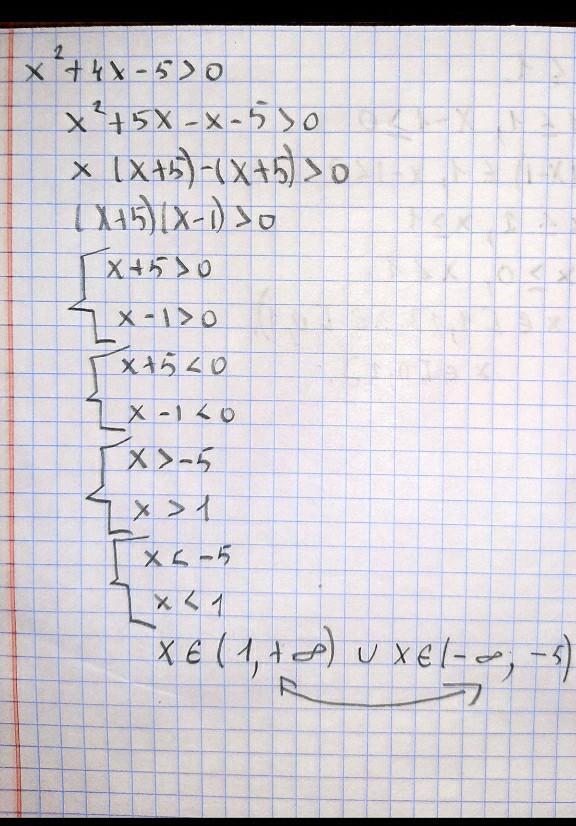 x²+4x-5>0
x²+5x-x-5>0
x(x+5)-(x+5)>0
(x+5)(x-1)>0
x+5>0
x-1>0
x+5<0
x-1<0
x>-5
x>1
x<-5
x<1
x∈(1,+∞)∪x∈(-∞,-5)